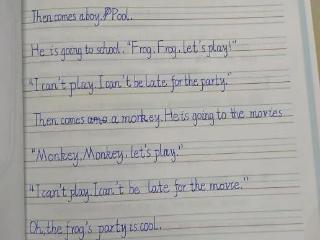 Then comes a boy. Pool.
He is going to school. "Frog, Frog, let's play!"
"I can't play. I can't be late for the party."
Then comes a monkey. He is going to the movies
"Monkey, Monkey, let's play."
"I can't play. I can't be late for the movie."
Oh, the frog's party is cool.